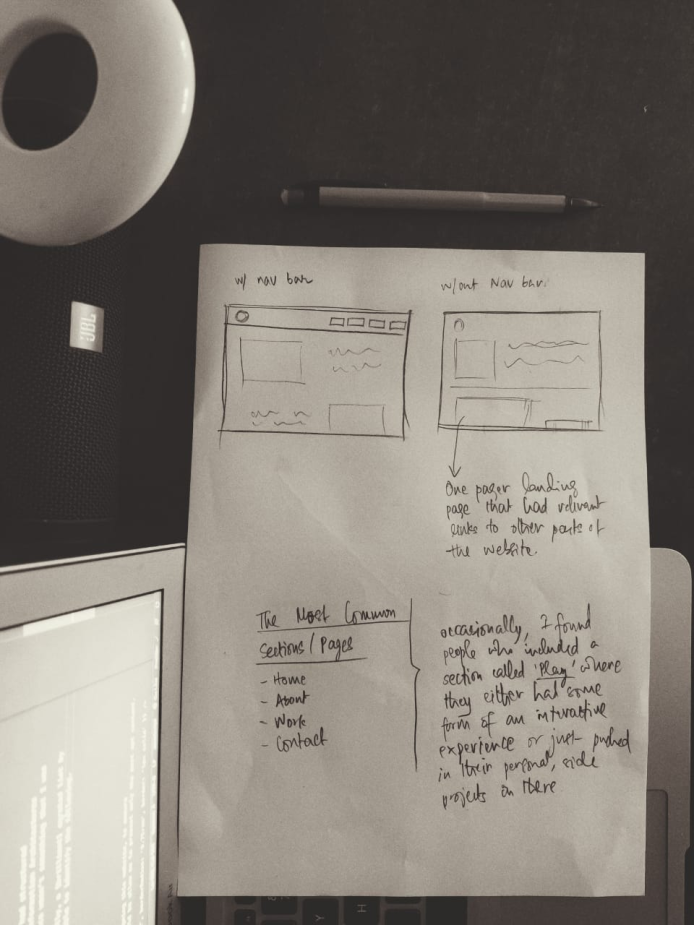 w/ nav bar
w/out Nav bar.
JBL
One pager landing
page that had relevant
links to other parts of
the website.
The Most Common
sections / Pages
- Home
- About
- Work
- Contact
occasionally, I found
people who included a
section called 'Play' where
they either had some
form of an interactive
experience or just pushed
in their personal, side
projects on there
Y
H